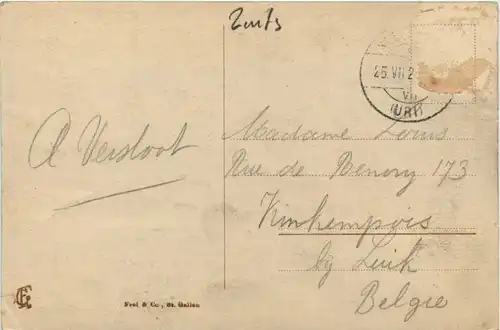 25. VII 2
(URI)
A Versloot
Madame Louis
Rue de Renory 173
Kinkempois
by Luik
Belgie
Frei & Co., St. Gallen